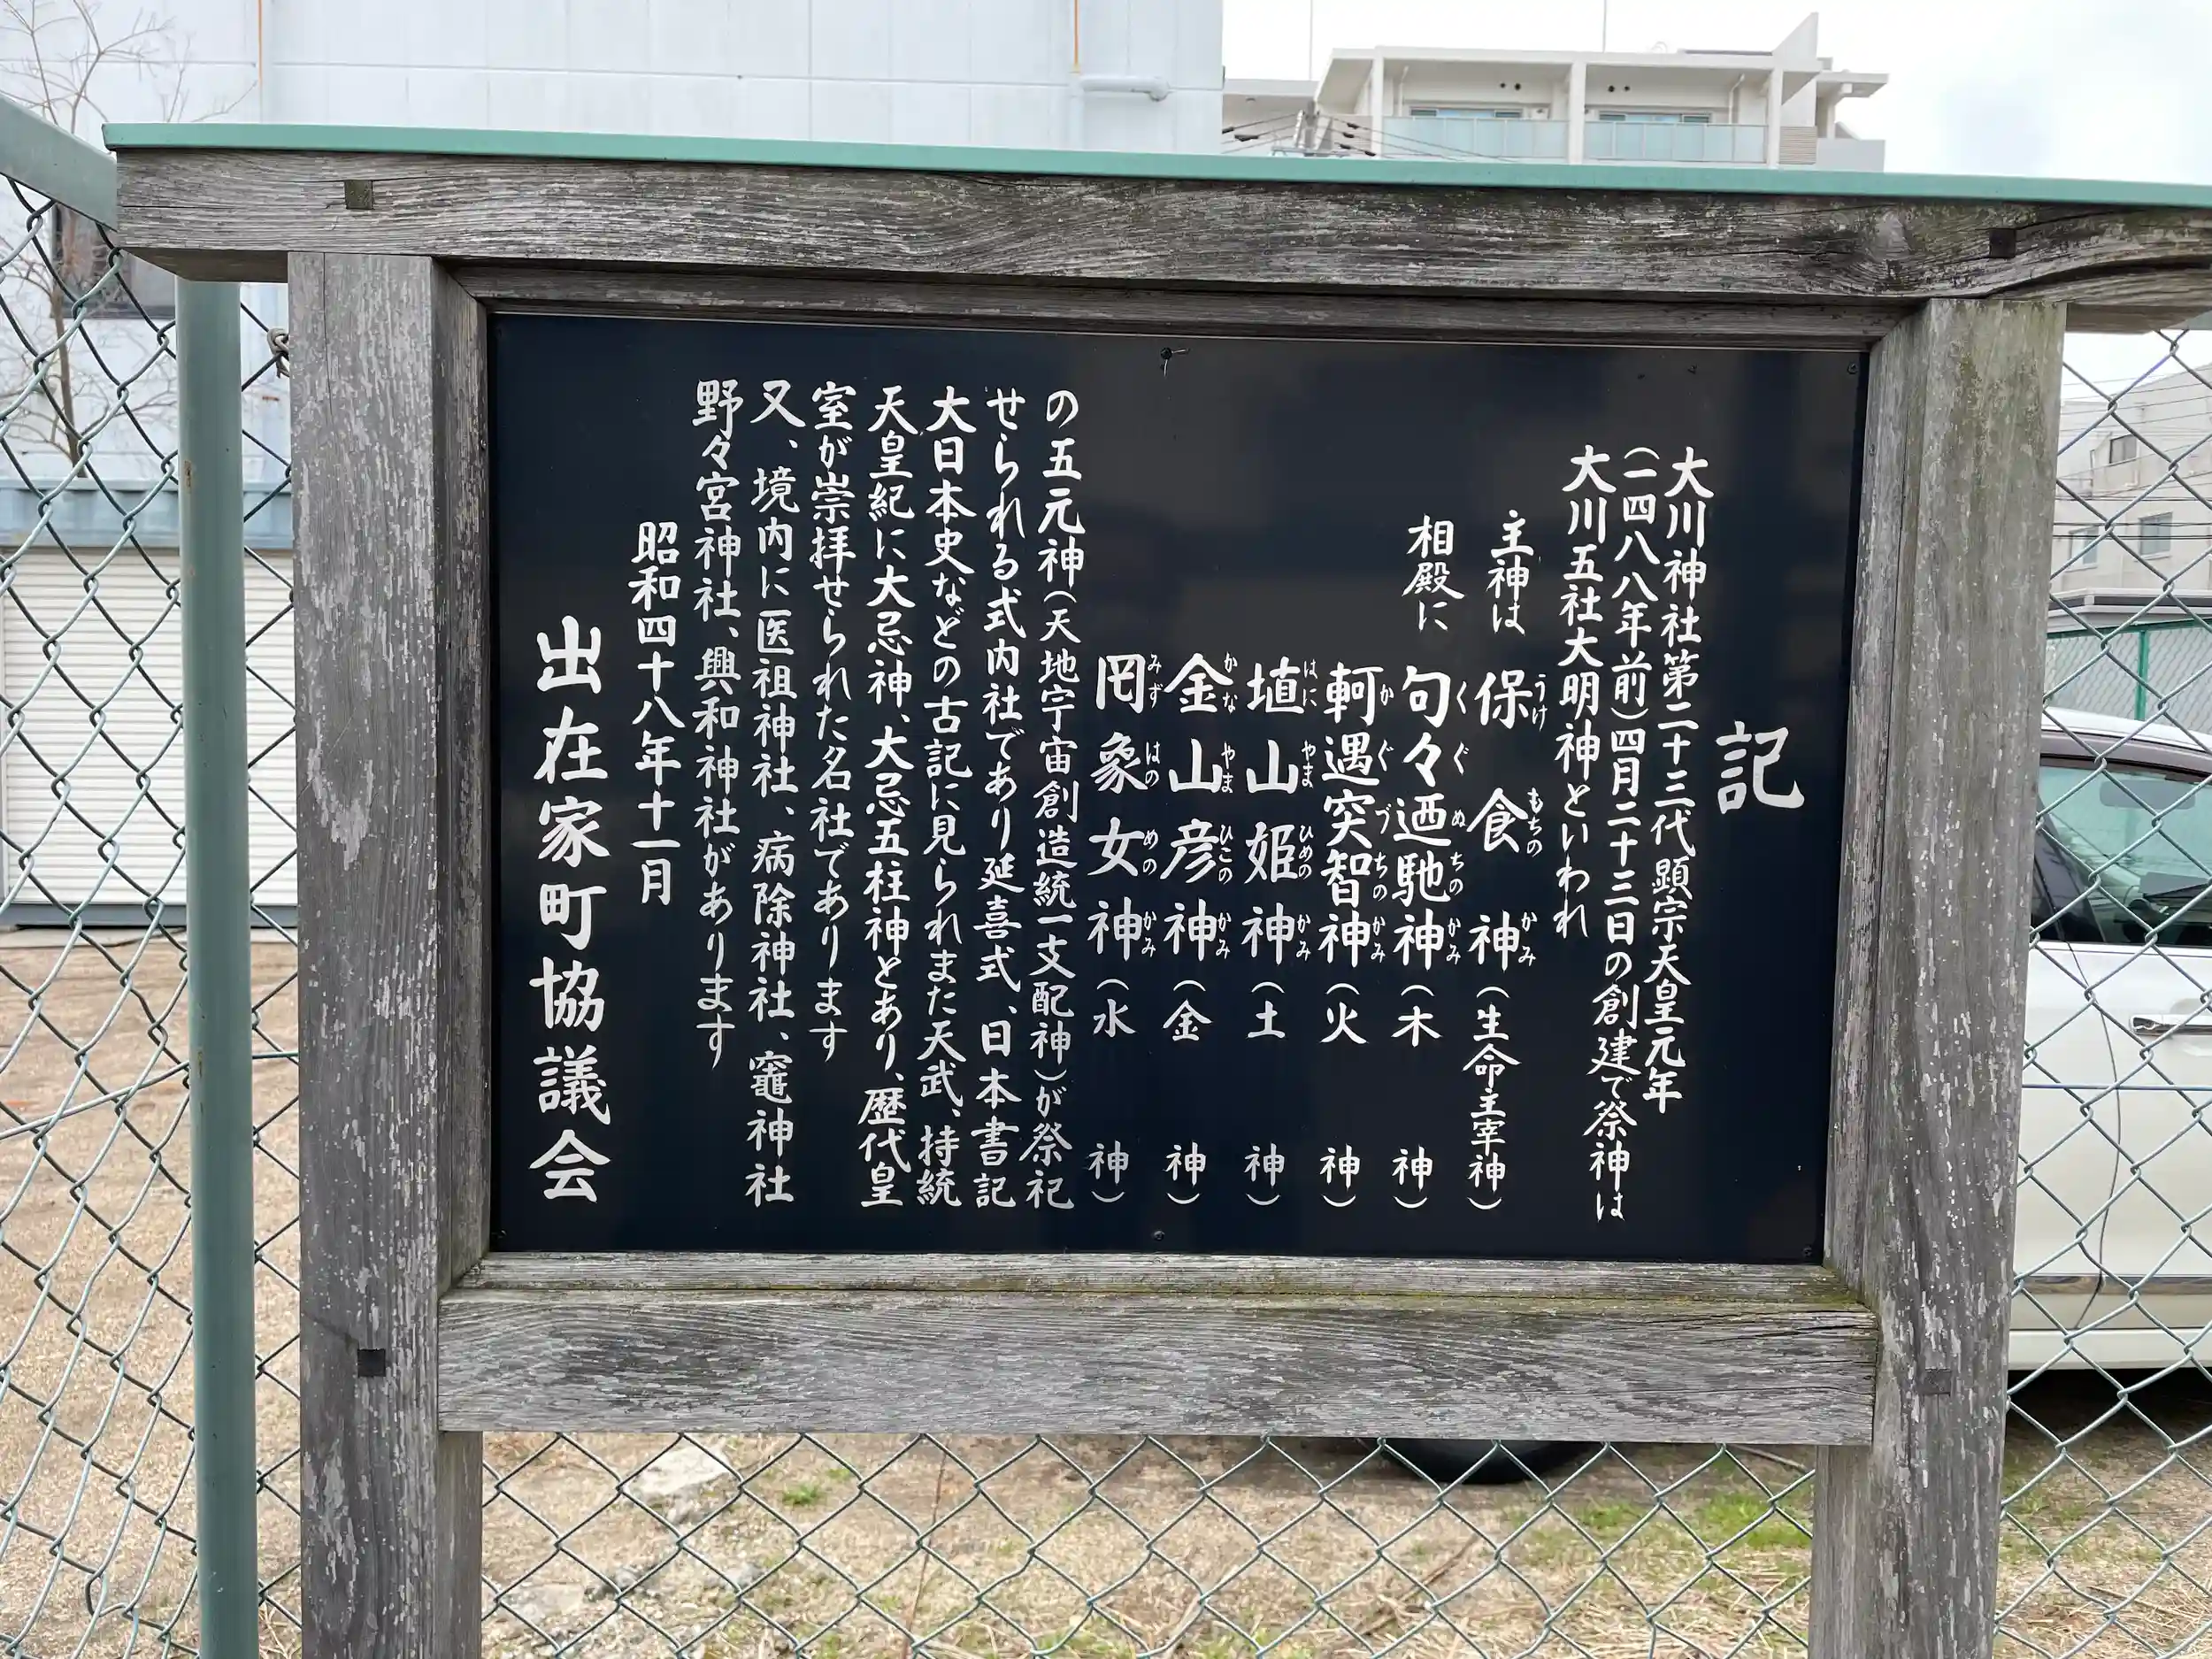 記
大川神社第二十三代顕宗天皇元年
(一四八八年前)四月二十三日の創建で祭神は
大川五社大明神といわれ
主神は 保食神(生命主宰神)
うけ もちの かみ
相殿に 句々迺馳神(木 神)
くぐぬちのかみ
軻遇突智神(火 神)
かぐづちのかみ
埴山姫神(土 神)
はにやまひめのかみ
金山彦神(金 神)
かなやまひこのかみ
罔象女神(水 神)
みずはのめのかみ
の五元神(天地宇宙創造統一支配神)が祭祀
せられる式内社であり延喜式、日本書記
大日本史などの古記に見られまた天武、持統
天皇紀に大忌神、大忌五柱神とあり、歴代皇
室が崇拝せられた名社であります
又、境内に医祖神社、病除神社、竈神社
野々宮神社、興和神社があります
昭和四十八年十一月
出在家町協議会